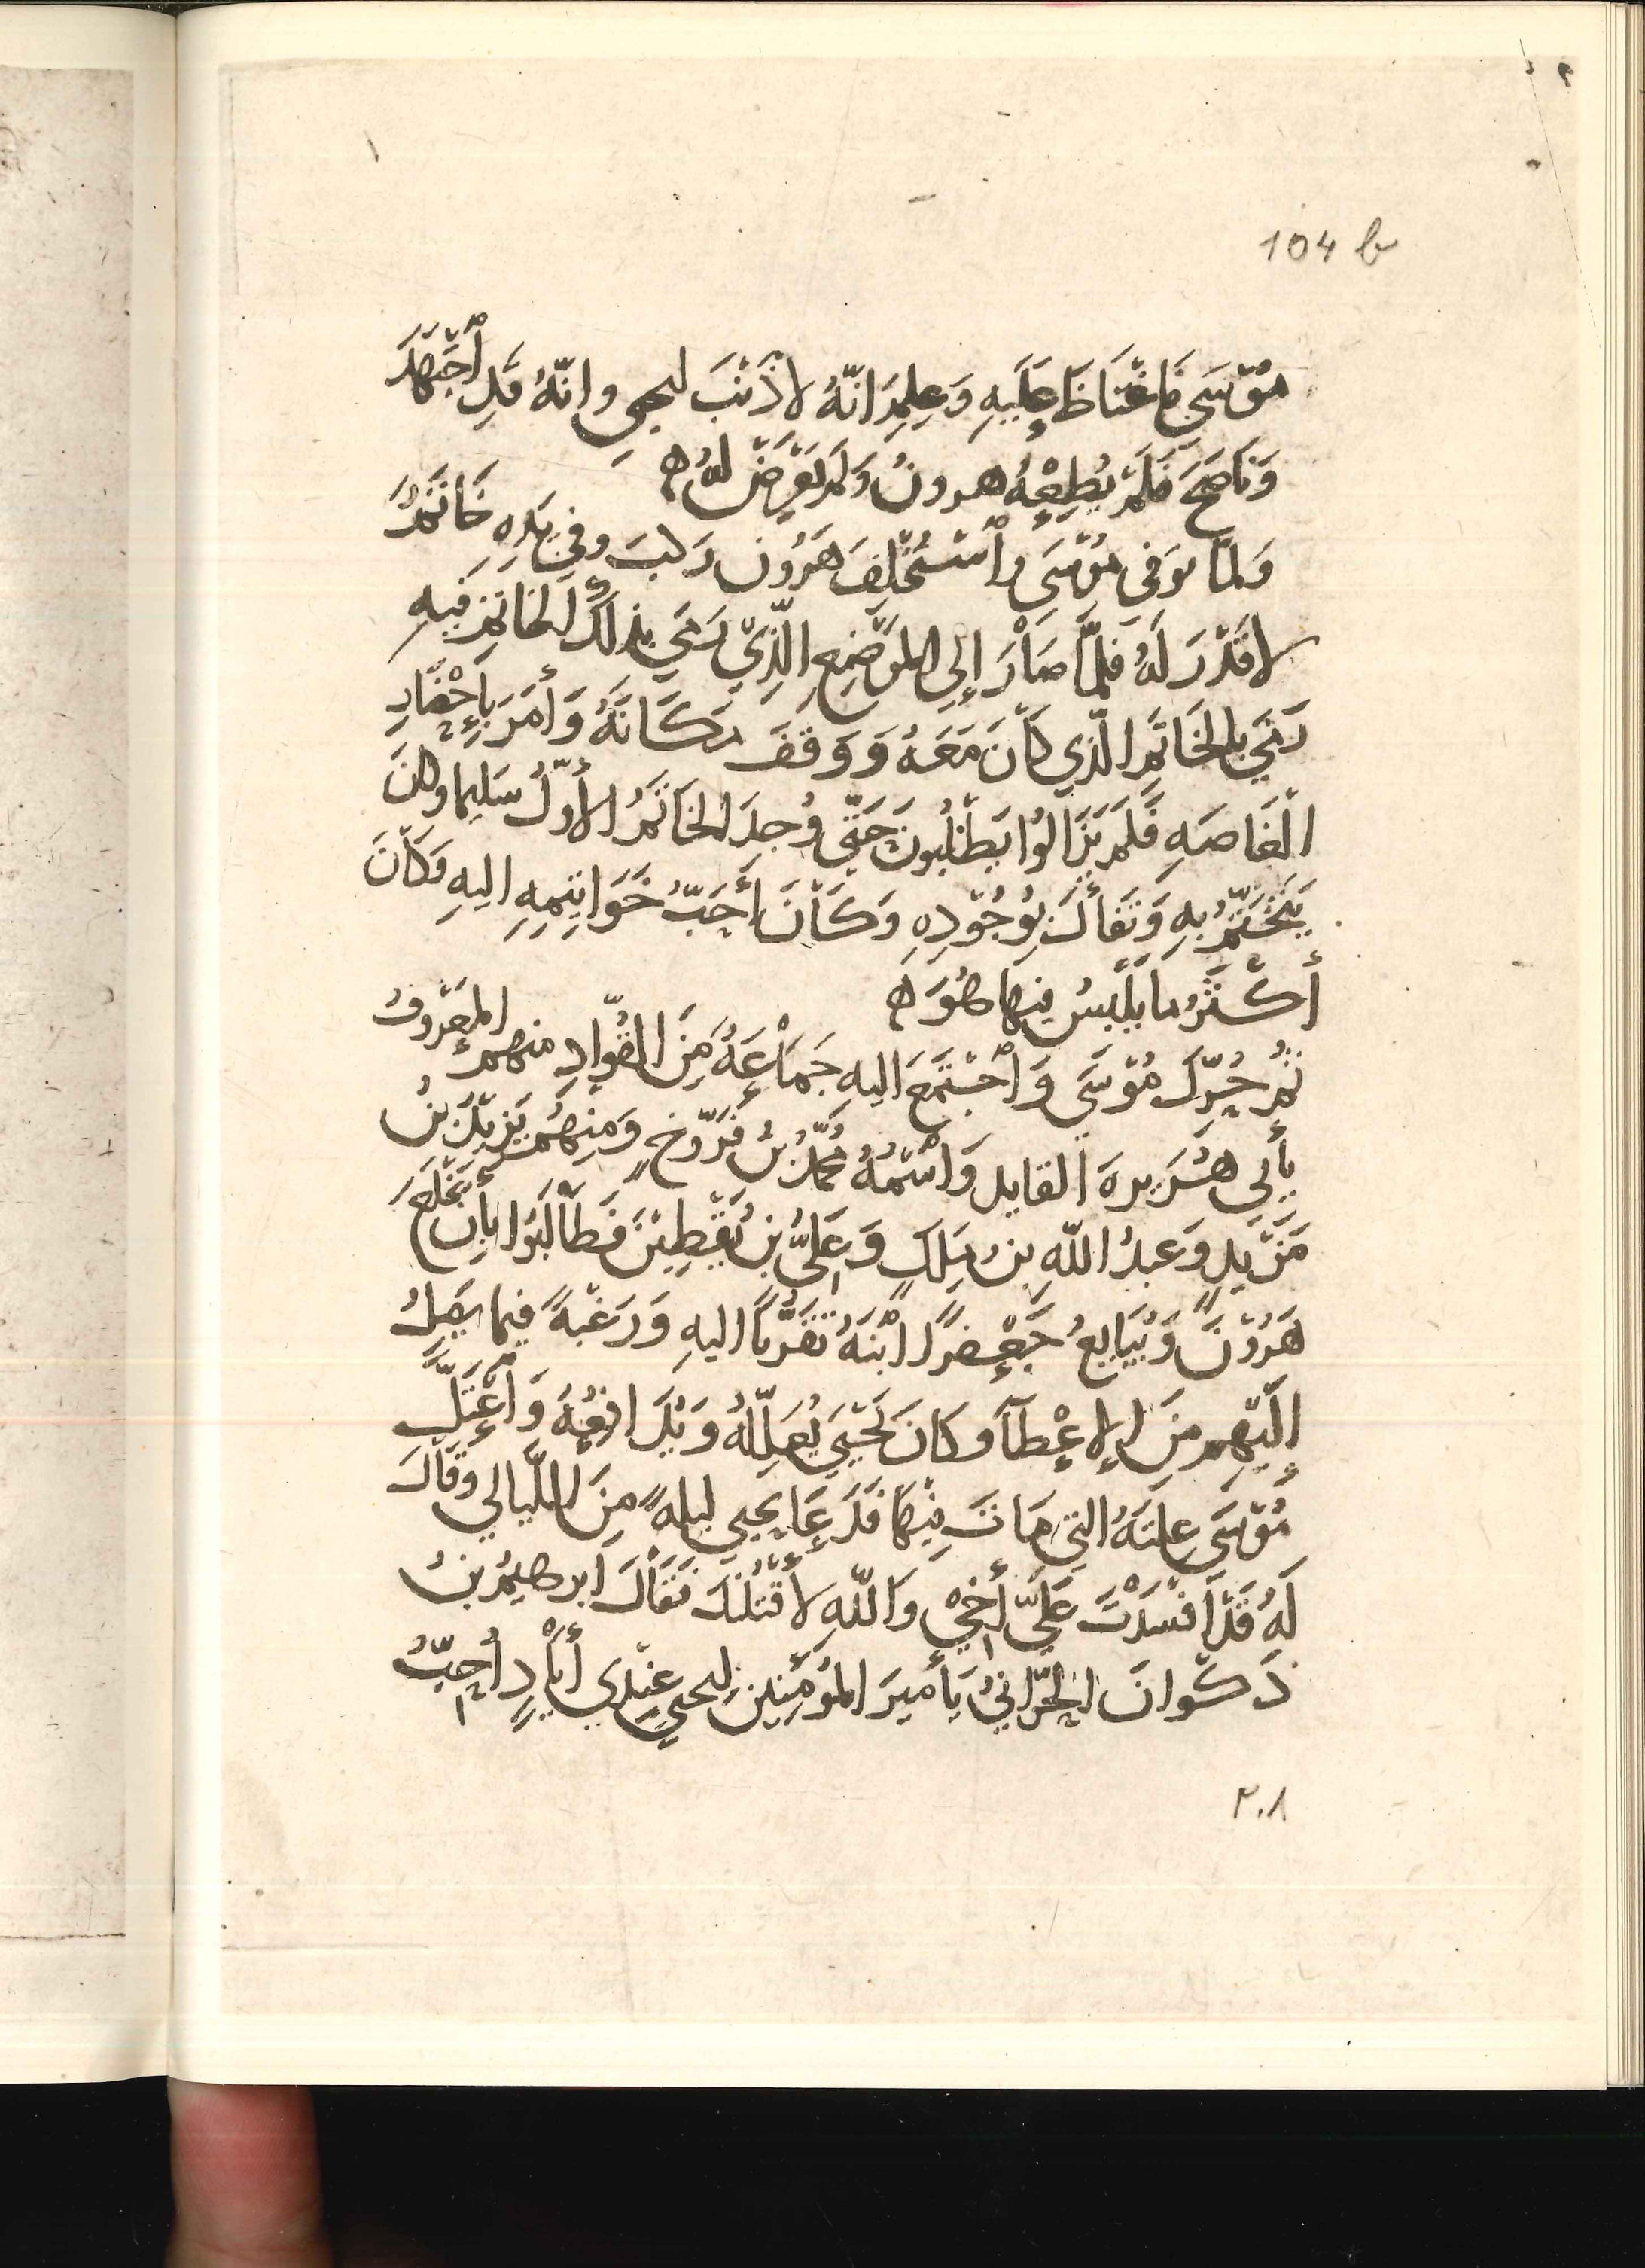 104 b
مُوْسَي فَاغْتَاظَ عَلَيهِ وَعلِمَ انّهُ لا ذَنْبَ ليحيي وانّهُ قَدِ ٱجْتَهَدَ
وَنَاصَحَ فَلَمْ يُطِعْهُ هرونُ وَلَم يَعْرِضْ لَهُ ه
وَلمّا توفي مُوْسَي وٱسْتُخْلِفَ هَرُون رَكبَ وفي يَدِهِ خَاتَمٌ
لا قَدْرَ لَهُ فلمَّا صَاْرَ إلي الموْضِعِ الَّذِيْ رَمَي بذلكَ الخاتمِ فِيهِ
رَمَي بالخَاتَمِ الّذي كَاْنَ مَعَهُ وَوَقَفَ مَكَانَهُ وَأمَرَ بإحْضَارِ
الْغَاصهِ فَلَمْ يَزَالُوا يَطْلُبُونَ حَتَّي وُجِدَ الخَاتَمُ الأَوَّلُ سَلِيما وكانَ
يَتَخَتَّمُ بهِ وَتَفَأَّلَ بِوُجُوْدِهِ وَكَاْنَ أَحَبَّ خَوَاتِيمِهِ اليهِ وَكَاْنَ
أَكْثَرُ ما يلْبَسُ فيها هُوَ ه
ثُمَّ حُرِّكَ مُوْسَي وَٱجْتَمَعَ اليهِ جَمَاْعَةٌ مِنَ القُوّادِ منهم المعْرُوفُ
بأَبي هُرَيرهَ القايد وَاسْمُهُ مُحَمَّدُ بنُ فَرّوخٍ وَمِنهُم يَزِيْدُ بنُ
مَزْيدٍ وَعبدُ اللهِ بنُ مَلِكٍ وَعَلِيُّ بنُ يَقْطِيْنَ فَطَاْلَبُوا بِأَن يَخْلَعَ
هَرُوْنَ وَيُبَايِعُ جَعْفَرًا ابْنَهُ تَقَرُّبًا اليهِ وَرَغْبةً فيما يَصِلُ
إلَيْهِم مِنَ الإعْطآ وكانَ يَحْيَي يُعَلِّلُهُ وَيُدَافِعُهُ وَٱعْتَلَّ
مُوْسَي عِلتَهُ التي مَاتَ فِيْهَا فَدَعَا يحيي ليلهً مِنَ اللّيالي وقَاْلَ
لَهُ قَدْ أَفْسَدْتَ عَلَيَّ أَخِيْ وَاللهِ لأَقْتُلَنَّكَ فَقَاْلَ ابرهيمُ بنُ
ذَكْوانَ الحَرّانيُّ يَأميرَ المؤْمِنِين لِيحيي عِندِي أَيَاْدٍ أُحِبُّ
٢٠٨